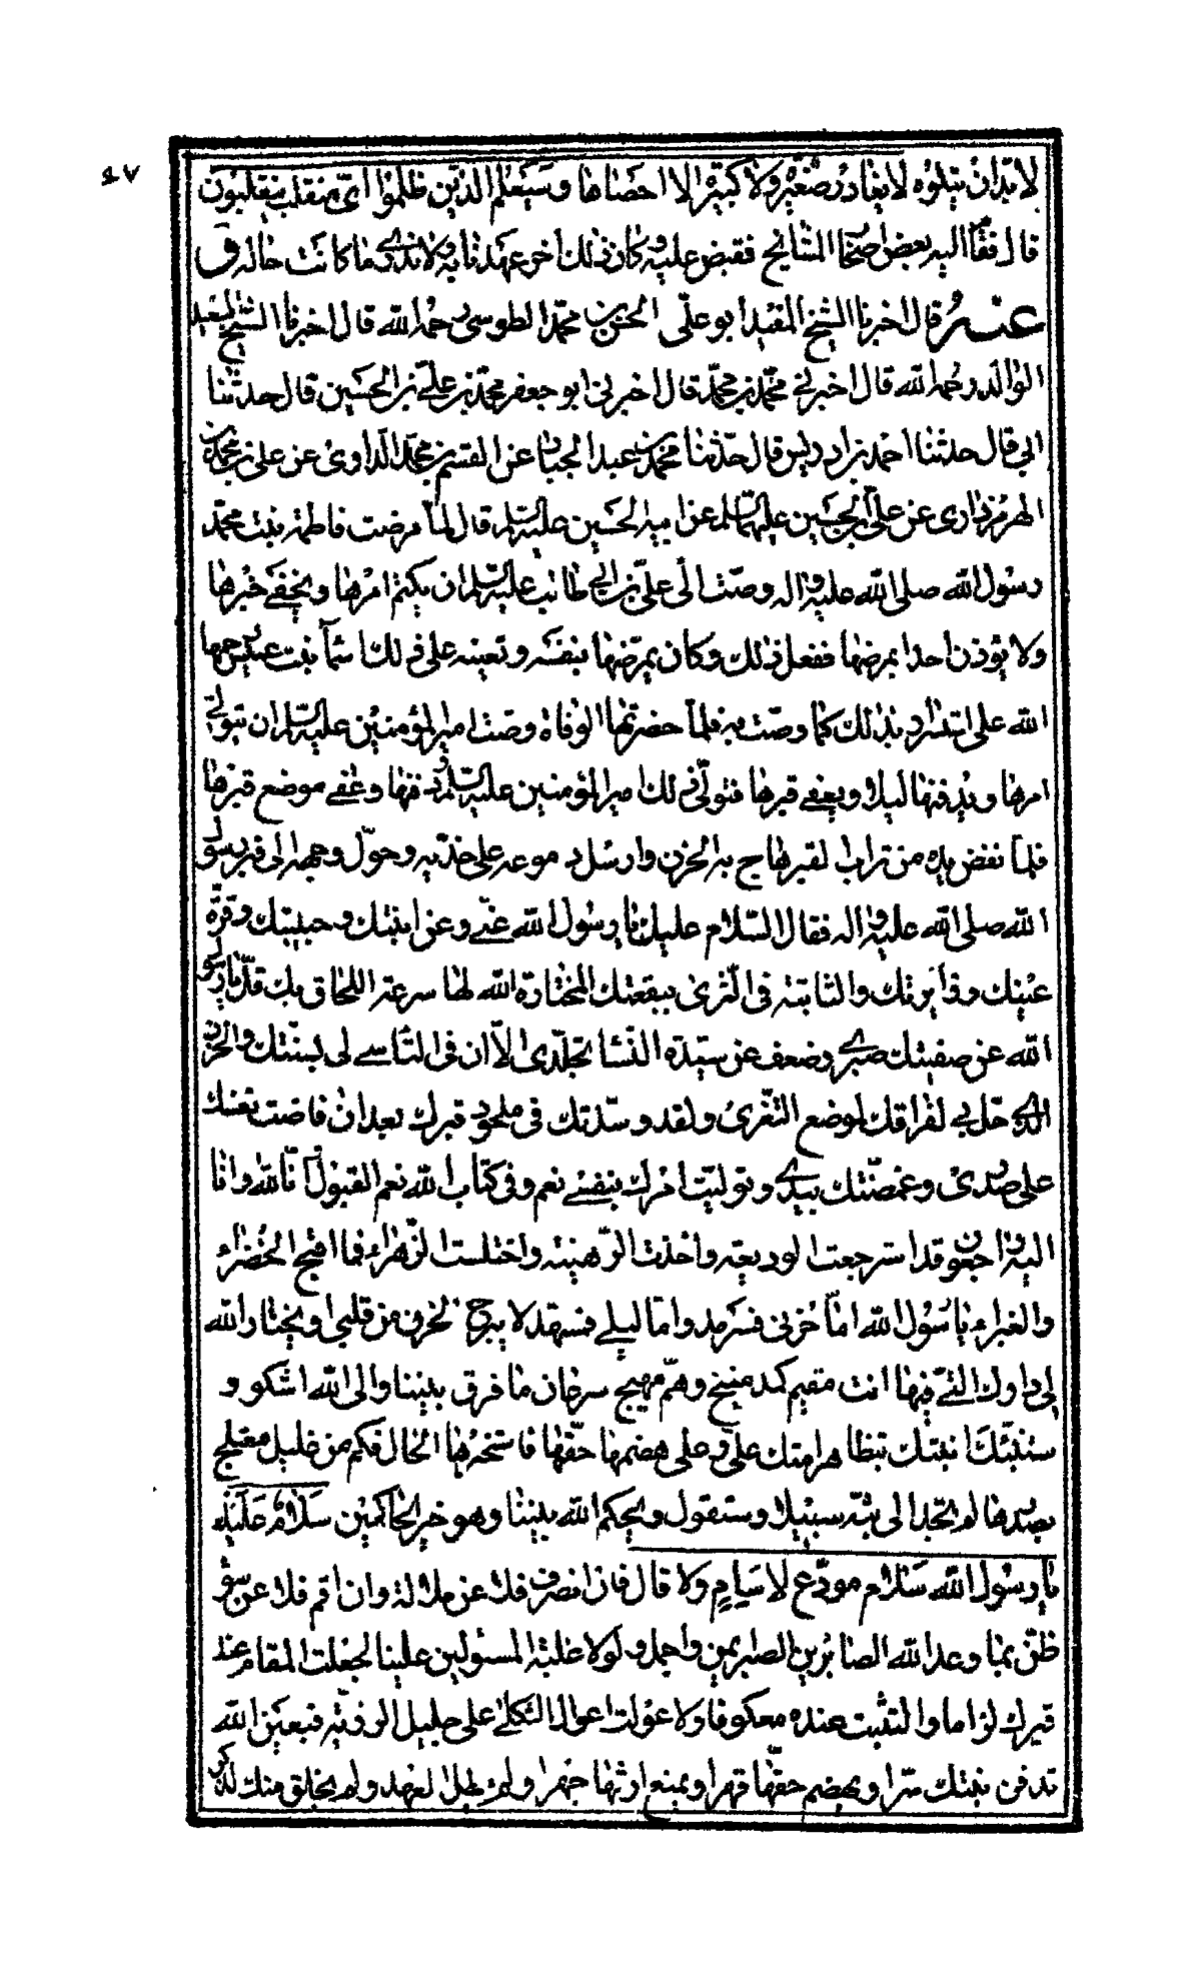 ٤٧
لا بد ان يتلوه لا يغادر صغيرة ولا كبيرة الا احصاها وسيعلم الذين ظلموا اى منقلب ينقلبون
قال فقام اليه بعض اصحابنا المشايخ فقبض عليه وكان ذلك اخر عهدنا به ولا ندرى ما كانت حاله ق
عنه قال اخبرنا الشيخ المفيد ابو على الحسن بن محمد الطوسى رحمه الله قال اخبرنا الشيخ السعيد
الوالد رحمه الله قال اخبرنى محمد بن محمد قال اخبرنى ابو جعفر محمد بن على بن الحسين قال حدثنا
ابى قال حدثنا احمد بن ادريس قال حدثنا محمد بن عبد الجبار عن القسم بن محمد الداوى عن على بن محمد بن
الهرمزدارى عن على بن الحسين عليهما السلم عن ابيه الحسين عليه السلم قال لما مرضت فاطمة بنت محمد
رسول الله صلى الله عليه واله وصت الى على بن ابى طالب عليه السلم ان يكتم امرها ويخفى خبرها
ولا يؤذن احدا بمرضها ففعل ذلك وكان يمرضها بنفسه وتعينه على ذلك اسماء بنت عميس رحمها
الله على استسرار بذلك كما وصت به فلما حضرتها الوفاة وصت امير المؤمنين عليه السلم ان يتولى
امرها ويدفنها ليلا ويعفى قبرها فتولى ذلك امير المؤمنين عليه السلم ودفنها وعفى موضع قبرها
فلما نفض يده من تراب القبر هاج به الحزن وارسل دموعه على خديه وحول وجهه الى قبر رسول
الله صلى الله عليه واله فقال السلام عليك يا رسول الله عنى وعن ابنتك وحبيبتك وقرة
عينك وزائرتك والثابتة فى الثرى ببقعتك المختارة الله لها سرعة اللحاق بك قل يا رسول
الله عن صفيتك صبرى وضعف عن سيدة النساء تجلدى الا ان فى التاسى لى بسنتك والحزن
الذى حل بى لفراقك لموضع التعزى ولقد وسدتك فى ملحود قبرك بعد ان فاضت نفسك
على صدرى وغمضتك بيدى وتوليت امرك بنفسى نعم وفى كتاب الله نعم القبول انا لله وانا
اليه راجعون قد استرجعت الوديعة واخذت الرهينة واختلست الزهراء فما اقبح الخضراء
والغبراء يا رسول الله اما حزنى فسرمد واما ليلى فسهد لا يبرح الحزن من قلبى او يختار الله
لى دارك التى فيها انت مقيم كمد مقيح وهم مهيج سرعان ما فرق بيننا والى الله اشكو و
ستنبئك ابنتك بتظاهر امتك على وعلى هضمها حقها فاستخبرها الحال فكم من غليل معتلج
بصدرها لم تجد الى بثه سبيلا وستقول ويحكم الله بيننا وهو خير الحاكمين سلام عليك
يا رسول الله سلام مودع لا سئم ولا قال فان انصرف فلا عن ملالة وان اقم فلا عن سوء
ظنى بما وعد الله الصابرين الصبر ايمن واجمل ولولا غلبة المستولين علينا لجعلت المقام عند
قبرك لزاما والتلبث عنده معكوفا ولاعولت اعوال الثكلى على جليل الرزية فبعين الله
تدفن بنتك سرا ويهضم حقها قهرا ويمنع ارثها جهرا ولم يطل العهد ولم يخلق منك الذكر